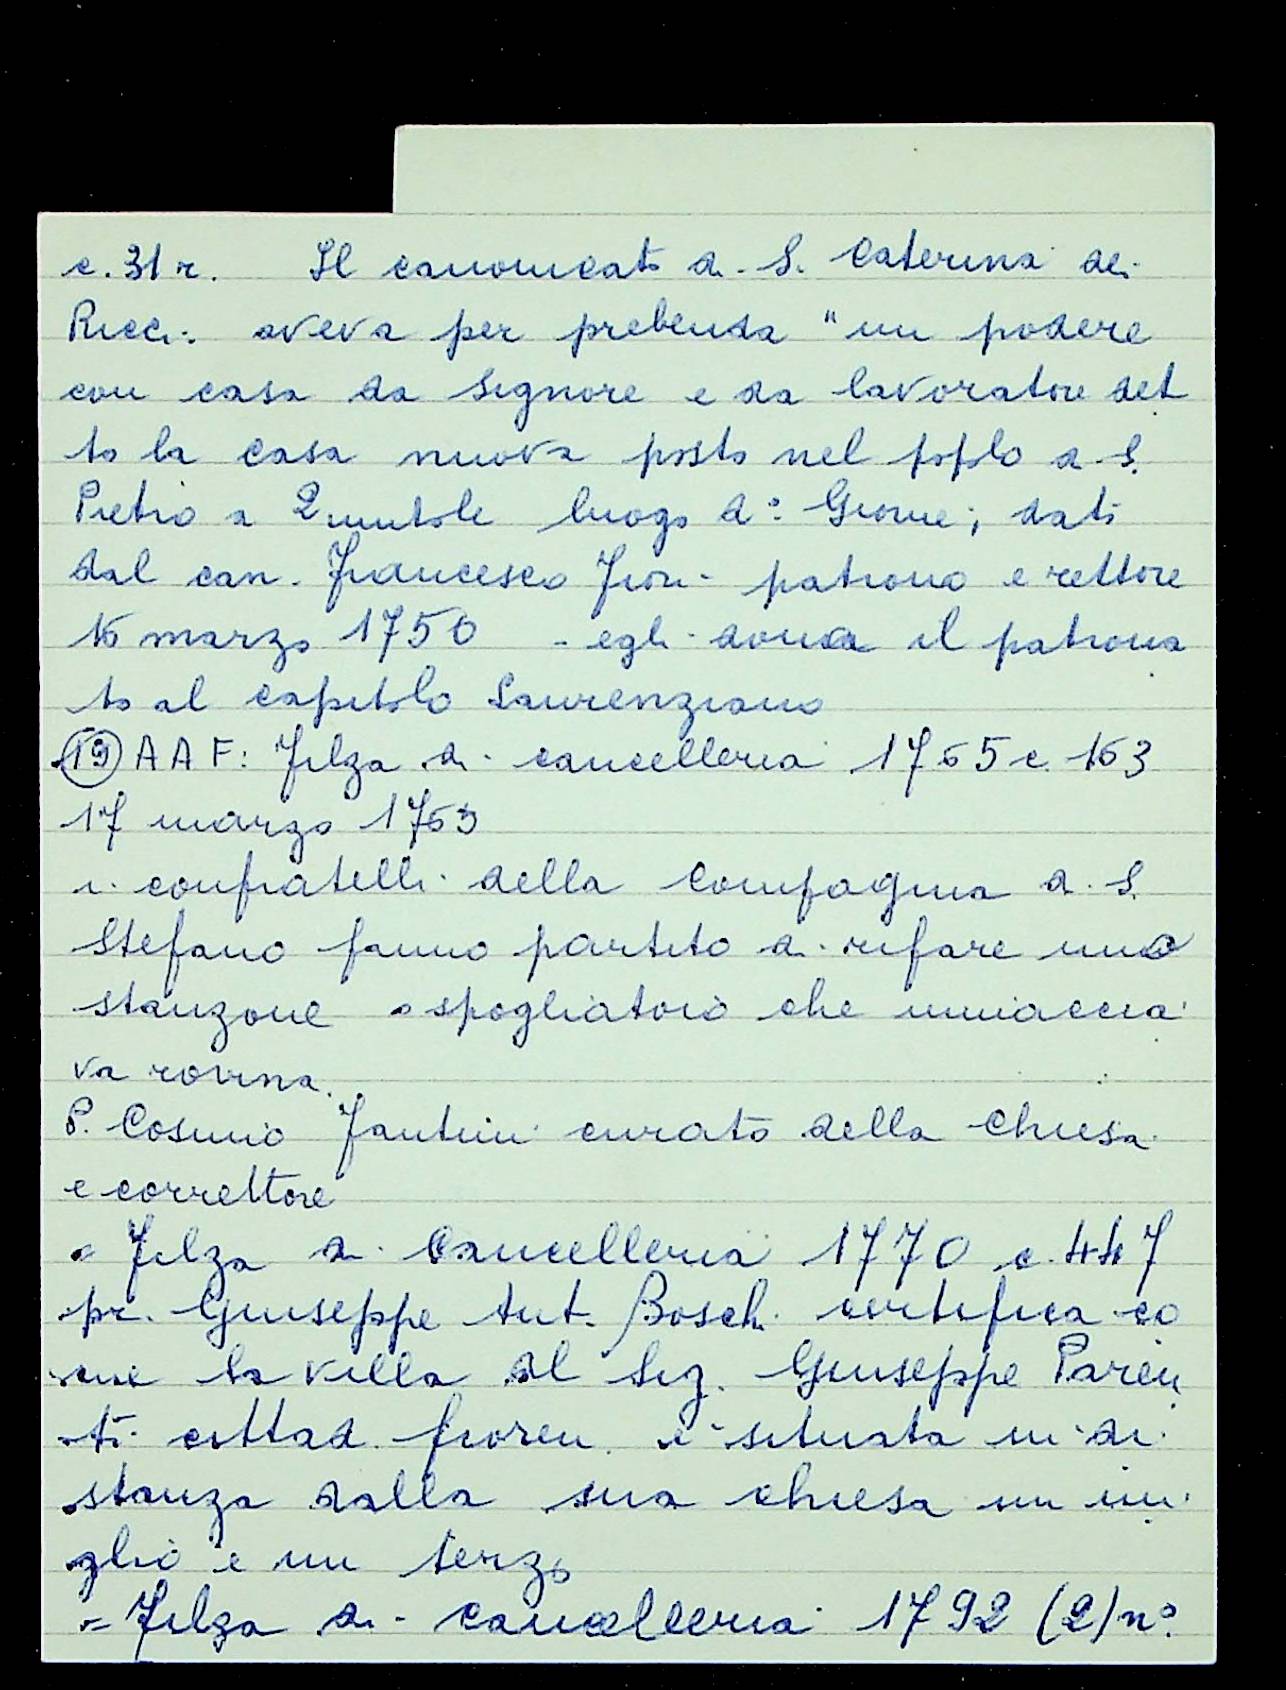 c. 31 r. Il canonicato di S. Caterina dei
Ricci aveva per prebenda "un podere
con casa da signore e da lavoratore det
to la casa nuova posto nel popolo di S.
Pietro a Quintole luogo d.º Giome; dati
dal can. Francesco Fiori patrono e rettore
16 marzo 1750 - egli dona il patrona
to al capitolo Laurenziano
(19) AAF: Filza di cancelleria 1765 c. 163
17 marzo 1763
i confratelli della Compagnia di S.
Stefano fanno partito di rifare uno
stanzone o spogliatoio che minaccia
va rovina.
P. Cosimo Fantini curato della Chiesa
e correttore
= Filza di Cancelleria 1770 c. 447
pr. Giuseppe Ant. Boschi certifica co
me la villa del Sig. Giuseppe Paren
ti cittad. fioren. è situata in di
stanza dalla sua chiesa un mi
glio e un terzo
= Filza di cancelleria 1792 (2) nº